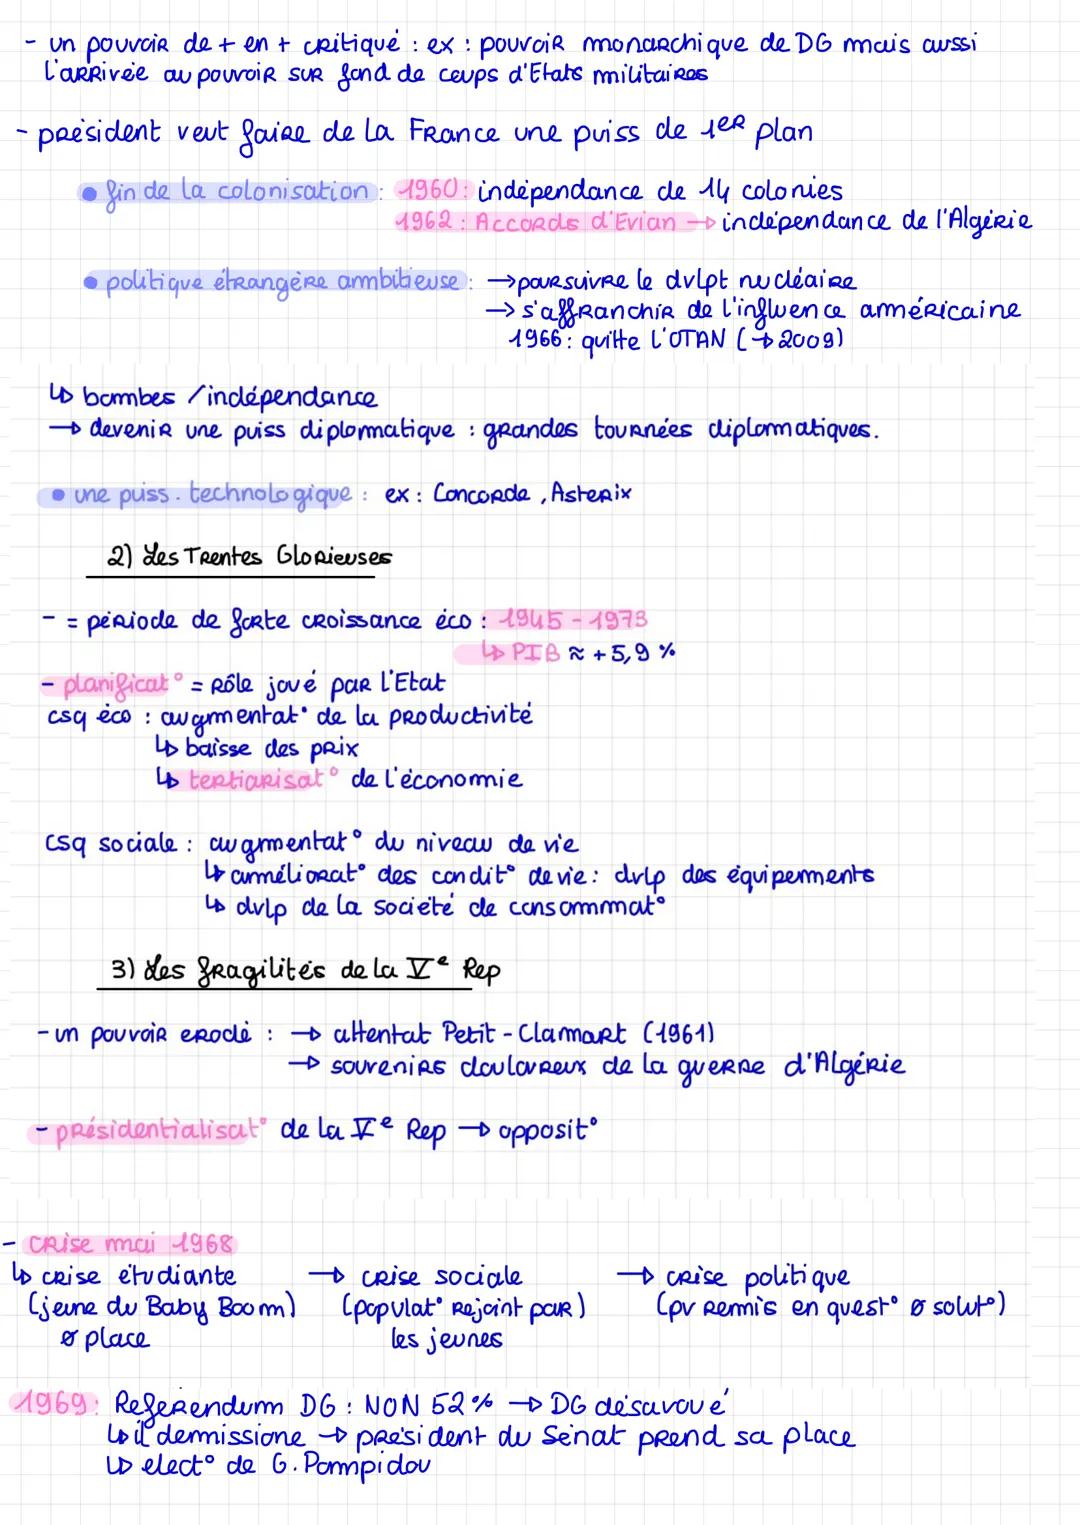 - un pouvoir de + en + critiqué : ex : pouvoir monarchique de DG mais aussi
l'arrivée au pouvoir sur fond de coups d'Etats militaires
- président veut faire de la France une puiss de 1er plan
• fin de la colonisation : 1960 : indépendance de 14 colonies
1962 : Accords d'Evian → indépendance de l'Algérie
• politique étrangère ambitieuse : → poursuivre le dvlpt nucléaire
→ s'affranchir de l'influence américaine
1966 : quitte l'OTAN (→ 2009)
↳ bombes / indépendance
→ devenir une puiss diplomatique : grandes tournées diplomatiques.
• une puiss. technologique : ex : Concorde, Asterix
2) Les Trentes Glorieuses
- = période de forte croissance éco : 1945 - 1973
↳ PIB ≈ + 5,9 %
- planificat° = Rôle joué par l'Etat
csq éco : augmentat° de la productivité
↳ baisse des prix
↳ tertiarisat° de l'économie
csq sociale : augmentat° du niveau de vie
↳ amméliorat° des condit° de vie : dvlp des équipements
↳ dvlp de la société de consommat°
3) Les fragilités de la Ve Rep
- un pouvoir erodé : → attentat Petit - Clamart (1961)
→ souvenirs douloureux de la guerre d'Algérie
- présidentialisat° de la Ve Rep → opposit°
- crise mai 1968
↳ crise étudiante → crise sociale → crise politique
(jeune du Baby Boom) (populat° rejoint par) (pv remis en quest° ø solut°)
ø place les jeunes
1969 : Referendum DG : NON 52 % → DG désavoué
↳ il demissione → président du Sénat prend sa place
↳ elect° de G. Pompidou